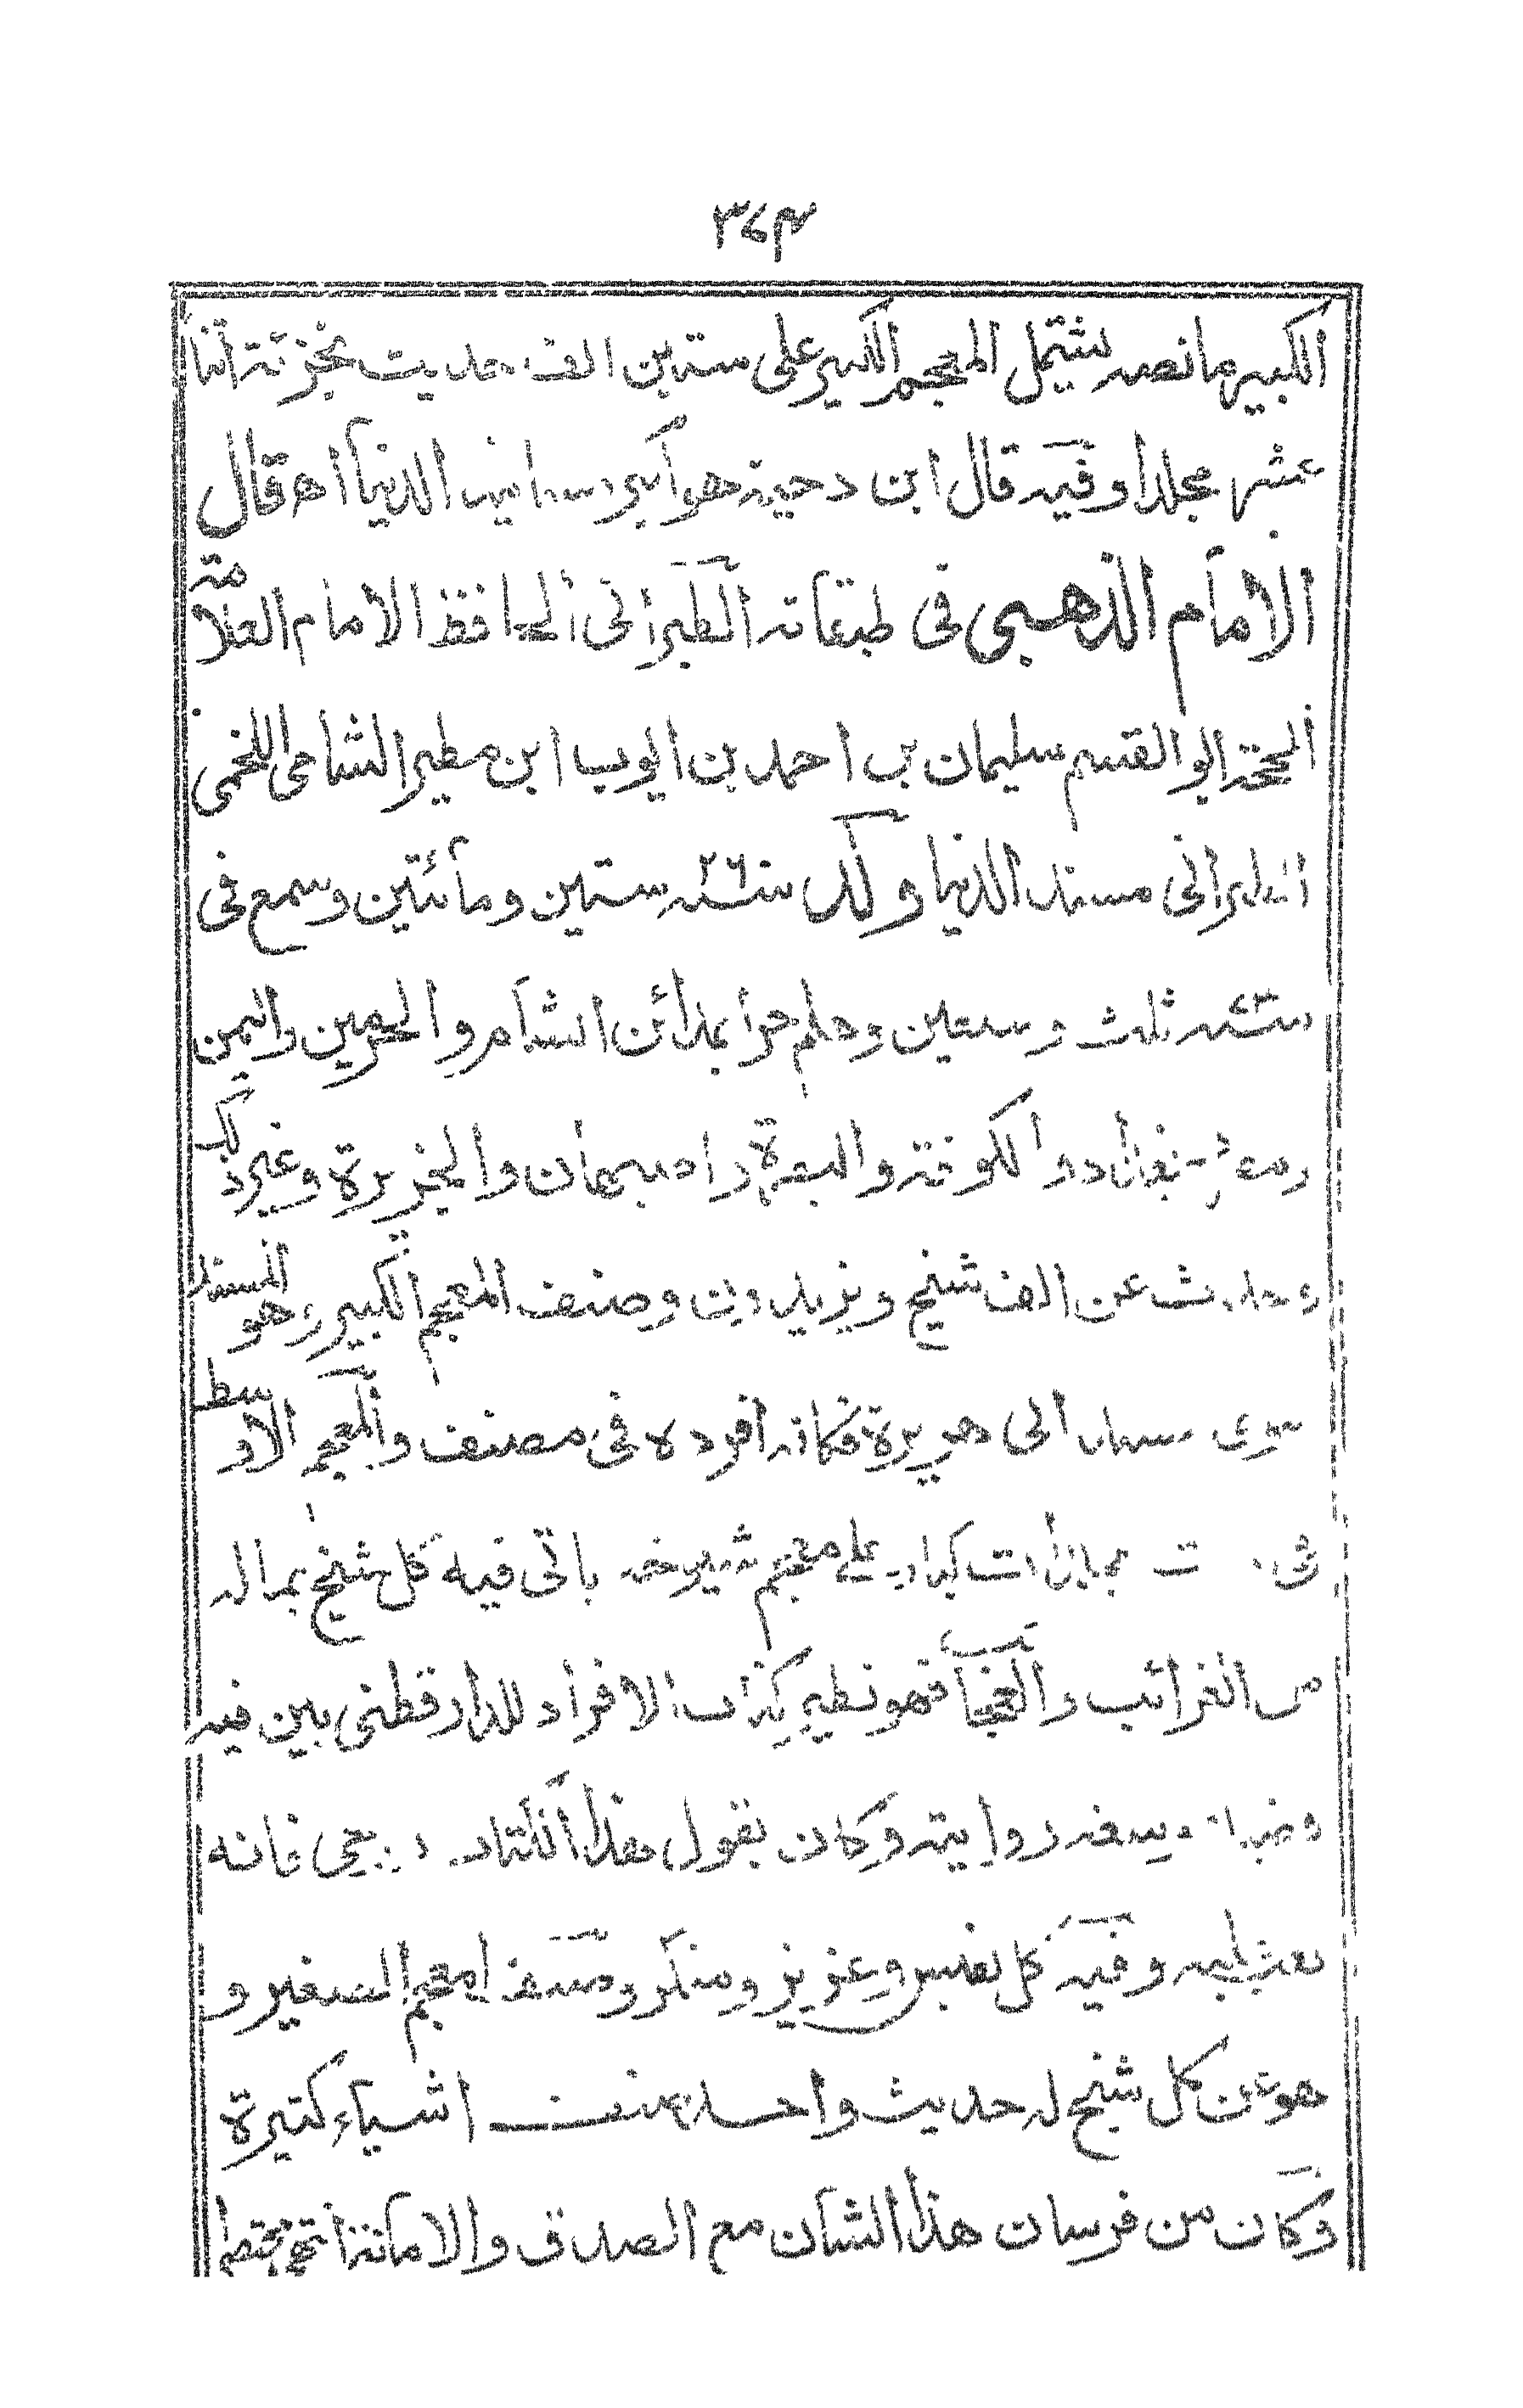 ٣٧٤
الكبير ما نصه يشتمل المعجم الكبير على ستين الف حديث بجزئة اثنا
عشر مجلدا وفيه قال ابن دحية هو اكبر مسانيد الدنيا اه قال
الامام الذهبي في طبقاته الطبراني الحافظ الامام العلامة
الحجة ابو القسم سليمان بن احمد بن ايوب ابن مطير الشامى اللخمى
الطبرانى مسند الدنيا ولد سنة ٢٦٠ ستين ومأئتين وسمع فى
سنة ٧٣ ثلث وستين وهلم جرا بمدائن الشام والحرمين واليمن
ومصر بغداد والكوفة والبصرة واصبهان والجزيرة وغير ذلك
وحدث عن الف شيخ ويزيدون وصنف المعجم الكبير وهو المسند
سوى مسند ابى هريرة فكانه افرده فى مصنف والمعجم الاوسط
فى ست مجلدات كبار على معجم شيوخه ياتى فيه كل شيخ بماله
من الغرائب والعجائب فهو نظير كتاب الافراد للدارقطنى بين فيه
فضيلته وسعة روايته وكان يقول هذا الكتاب روحى فانه
تعب عليه وفيه كل نفيس وعزيز ومنكر وصنف المعجم الصغير و
هو عن كل شيخ له حديث واحد وصنف اشياء كثيرة
وكان من فرسان هذا الشان مع الصدق والامانة انتهى مختصرا